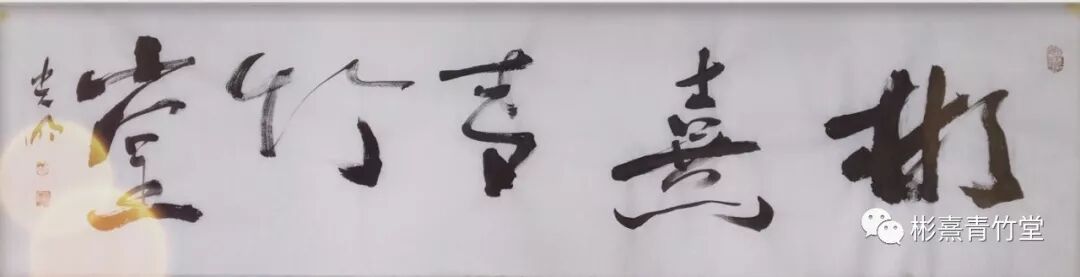 彬熹青竹堂
彬熹青竹堂